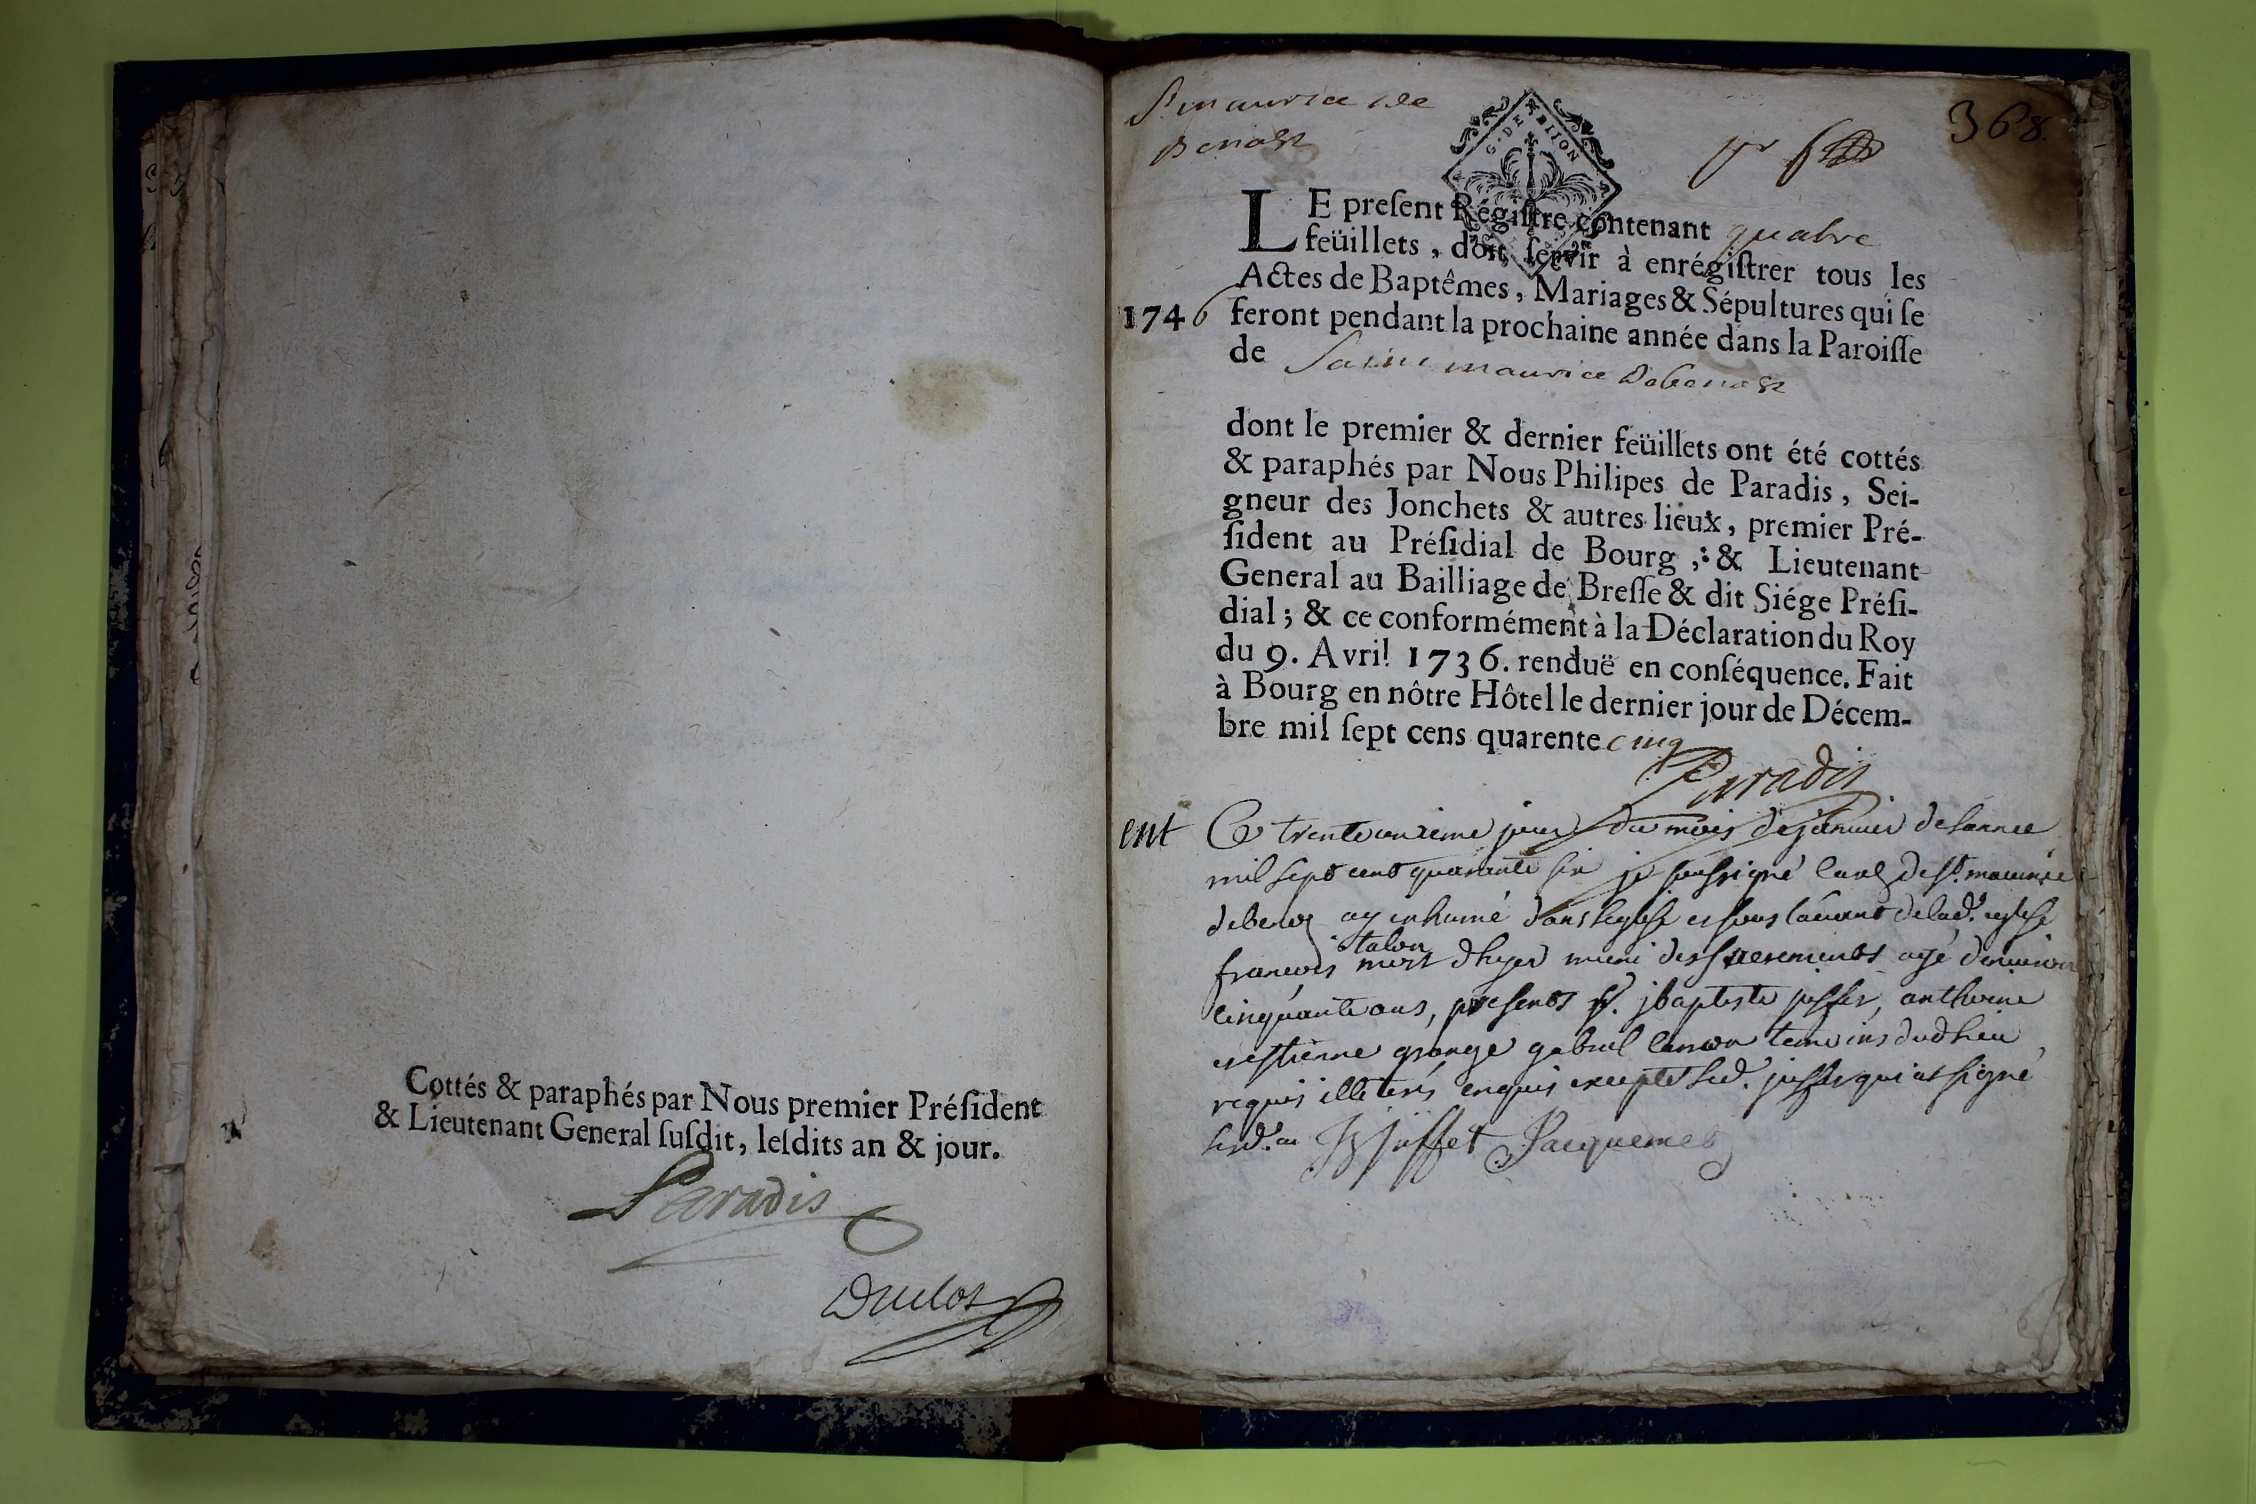 Cottés & paraphés par Nous premier Préſident
& Lieutenant General ſuſdit, leſdits an & jour.
Paradis
Duclos
St maurice de
Benost
368
G. DE DIJON
LE preſent Régiſtre contenant quatre
feüillets, doit ſervir à enrégiſtrer tous les
Actes de Baptêmes, Mariages & Sépultures qui ſe
1746 feront pendant la prochaine année dans la Paroiſſe
de Saint maurice Debenost
dont le premier & dernier feüillets ont été cottés
& paraphés par Nous Philipes de Paradis, Sei-
gneur des Jonchets & autres lieux, premier Pré-
ſident au Préſidial de Bourg, & Lieutenant
General au Bailliage de Breſſe & dit Siége Préſi-
dial; & ce conformément à la Déclaration du Roy
du 9. Avril 1736. renduë en conſéquence. Fait
à Bourg en nôtre Hôtel le dernier jour de Décem-
bre mil ſept cens quarente cinq
Paradis
ent Ce trente unzieme jour du mois de janvier de lannee
mil sept cent quarante six je soussigné curé de st. maurice
de benos ay inhumé dans leglise et sous lauvant de lad. eglise
talon
françois mort dhyer muni des sacrements agé denviron
cinquante ans, presents sr. jbaptiste juffet, anthoine
et estienne grange gabriel temoins dud lieu
requis illeterés enquis excepté led. juffet qui at signé
JB juffet Jacquemet